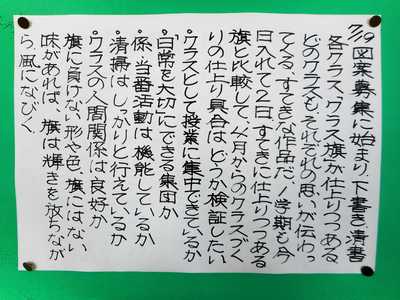 7/19 図案募集に始まり、下書き、清書
各クラス、クラス旗が仕上りつつある
どのクラスも、それぞれの思いが伝わっ
てくる、すてきな作品だ！学期も今
日入れて2日、すてきに仕上りつつある
旗と比較して、4月からのクラスづく
りの仕上り具合は、どうか検証したい
・クラスとして授業に集中できているか
・「日常を大切に」できる集団か
・係、当番活動は、機能しているか
・清掃は、しっかりと行えているか
・クラスの人間関係は良好か
旗に負けない形や色、旗にはない
味があれば、旗は輝きを放ちなが
ら、風になびく。